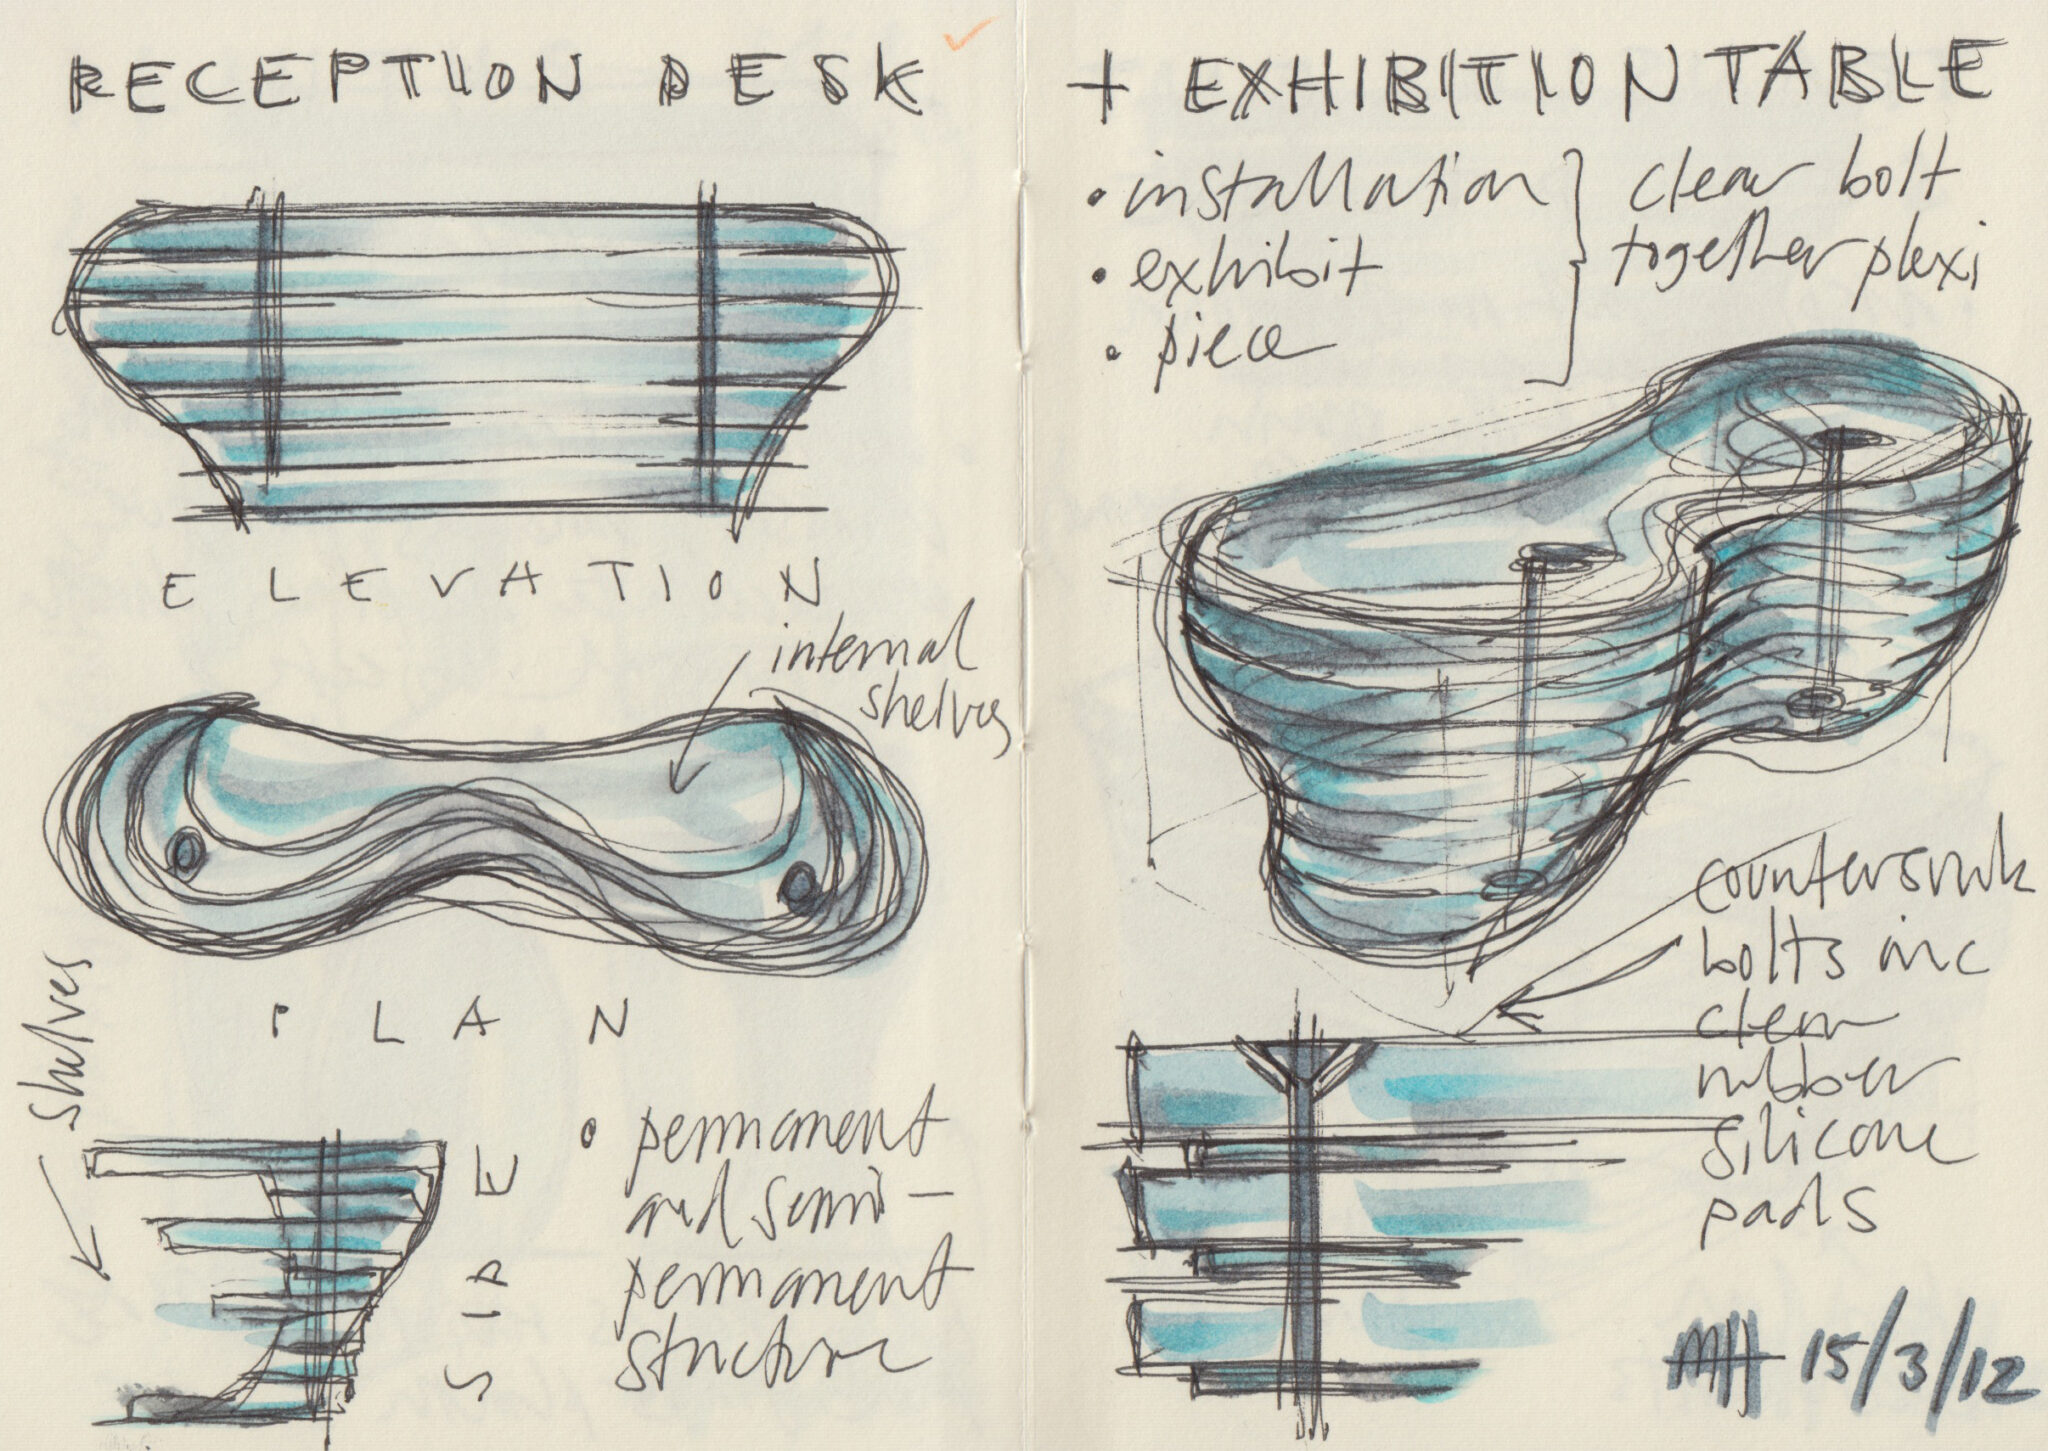 RECEPTION DESK
ELEVATION
internal
shelves
PLAN
shelves
SIDE
• permanent
and semi-
permanent
structure
+ EXHIBITION TABLE
• installation
• exhibit
• piece
clear bolt
together plexi
countersunk
bolts inc
clear
rubber
silicone
pads
MH 15/3/12